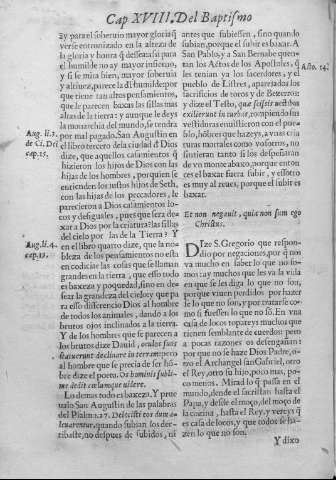 Cap XVIII. Del Baptismo
ay para el soberuio mayor gloria q̃
verse entronizado en la alteza de
la gloria y honra q̃ dessea: ni para
el humilde no ay mayor infierno,
y si se mira bien, mayor soberuia
y alteza, parece la dl humilde, por
que tiene tan altos pensamientos,
que le parecen baxas las sillas mas
altas de la tierra: y aunque le dey s
la monarchia del mundo, se tendra
por mal pagado. San Augustin en
el libro tercero de la ciudad d Dios
dize, que aquellos casamientos q̃
hizieron los hijos de Dios con las
hijas de los hombres, por quien se
entienden los justos hijos de Seth,
con las hijas de los pecadores, le
parecieron a Dios casamientos lo-
cos y desiguales, pues que sera de-
xar a Dios por la criatura? las sillas
del cielo por las de la Tierra? Y
en el libro quarto dize, que la no-
bleza de los pensamientos no esta
en codiciar las cosas que se llaman
grandes en la tierra, que esso todo
es baxeza y poquedad, sino en des-
sear la grandeza del cielo: que pa
ra esso diferencio Dios al hombre
de todos los animales, dando a los
brutos ojos inclinados a la tierra.
Y de los hombres que se parecen a
los brutos dize Dauid, oculos suos
statuerunt declinare in terram: pero
al hombre que se precia de ser hõ-
bre dize el poeta. Os hominis subli-
me dedit cœlumque videre.
Lo demas todo es baxeza. Y prue
ualo San Augustin de las palabras
del Psalmo. 27. Deiecisti eos dum al-
leuarentur, quando subian los der-
ribaste, no despues de subidos, ni
Aug. li. 2.
de Ci. Dei
cap. 15.
Aug. li. 4.
cap. 19.
antes que subiessen, sino quando
subian, porque el subir es baxar. A
San Pablo, y a San Bernabe quen-
tan los Actos de los Apostoles, q̃
les tenian ya los sacerdotes, y el
pueblo de Listres, aparejados los
sacrificios de toros y de
y dize el Texto, que scissis vestibus
exilierunt in turbas, rompiendo sus
vestiduras embistieron con el pue-
blo, hõbres que hazeys, a vnas cria
turas mortales como vosotros, no
sintieran tanto si los despeñaran
de vn monte abaxo, porque enton
ces el baxar fuera subir, y essotro
es muy al reues, porque el subir es
baxar.
Acto. 14.
Et non negauit, quia non sum ego
Christus.
DIze S. Gregorio que respon-
dio por negaciones, por q̃ nos
va mucho en saber lo que no so-
mos: ay muchos que les va la vida
en que se les diga lo que no son,
porque viuen perdidos por hazer
de lo que no son, y por tratarse co-
mo si fuessen lo que no son. En vna
casa de locos topareys muchos que
tienen semblante de cuerdos: pero
a pocas razones os desengañan:
por que no se haze Dios Padre, o-
tro el Archangel san Gabriel, otro
el Rey, otro su hijo, poco mas, po-
co menos. Mirad lo q̃ passa en el
mundo, dende el sacristan hasta el
Papa, y desde el moço, del moço de
la cocina, hasta el Rey, y vereys q̃
es casa de locos, y que todos se ha-
zen lo que no son.
Y dixo